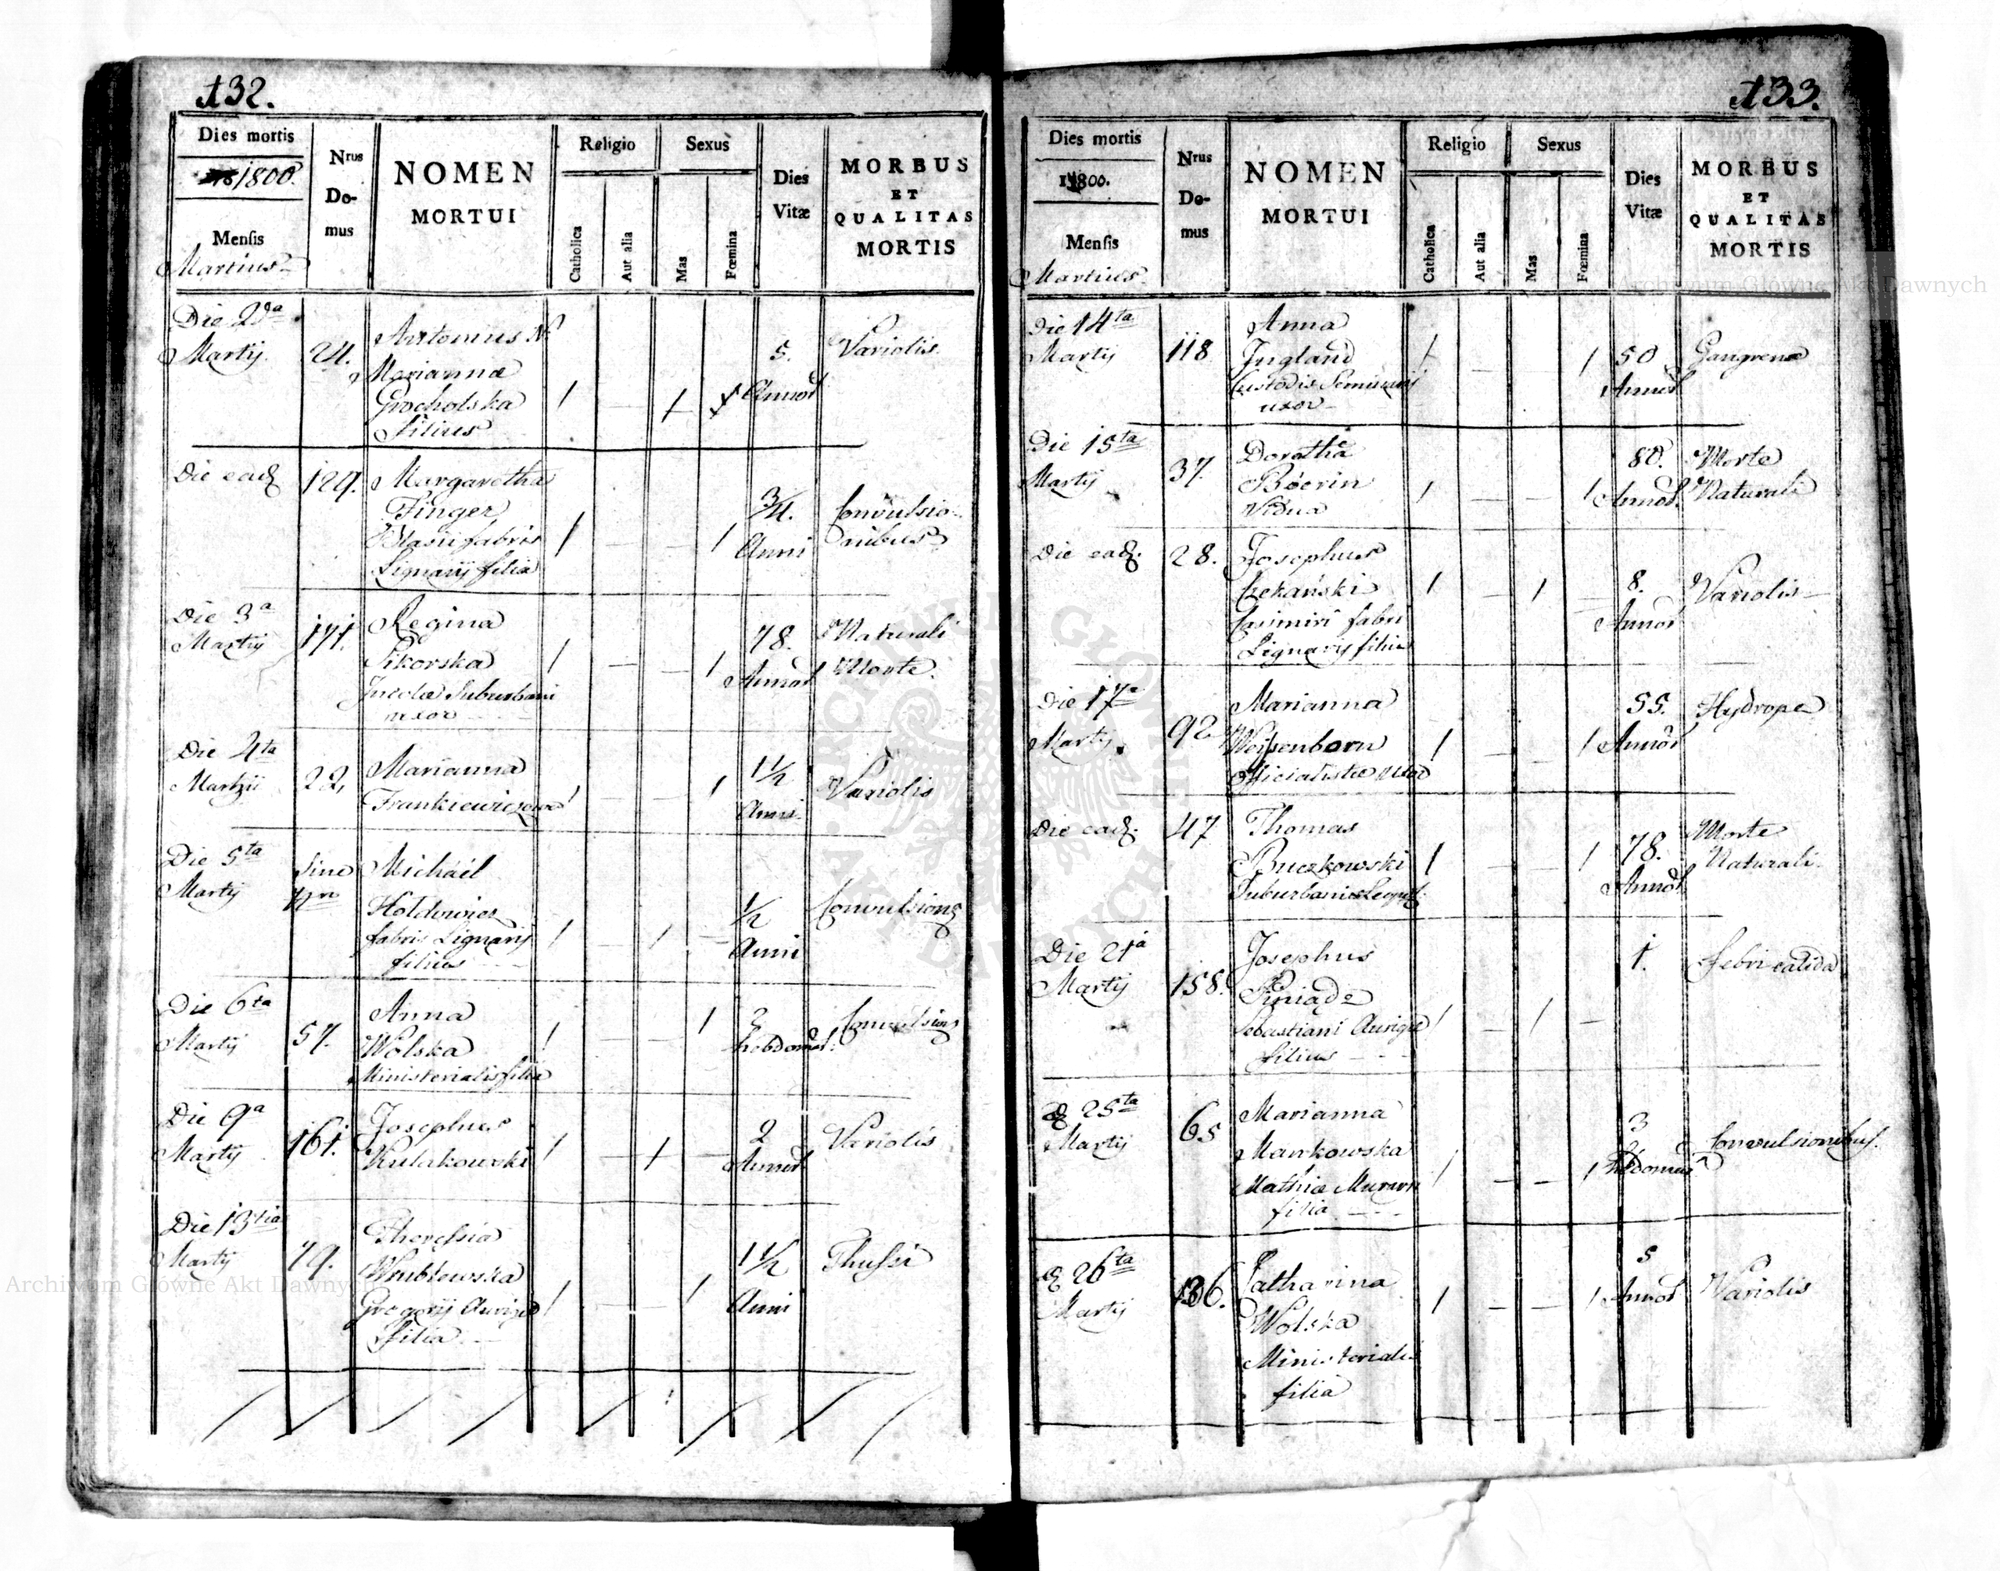 132.
Dies mortis
1800.
Mensis
Martius
Nrus Domus
NOMEN
MORTUI
Religio
Catholica
Aut alia
Sexus
Mas
Fœmina
Dies
Vitæ
MORBUS
ET
QUALITAS
MORTIS
Die 2da
Martij 24. Antonius N.
Marianna
Grocholska
filius
1 — 1
5.
Annor
Variolis
Die ead 129. Margaretha
Finger
Blasii fabris
Lignarij filia
1 — — 1
3/4.
Anni
Convulsio-
nibus
Die 3a
Martij 171. Regina
Sikorska
Incolæ Suburbani
uxor
1 — — 1
78.
Annor
Naturali
Morte.
Die 4ta
Martij 22, Marianna
Frankiewiczowa
1 — — 1
1 1/2
Anni
Variolis
Die 5ta
Martij Sine
Nro
Michael
Holdowicz
fabris Lignarij
filius
1 — 1 —
1/2
Anni
Die 6ta
Martij 57. Anna
Wolska
Ministerialis filia
1 — — 1
3
hebdomad.
Die 9a
Martij 161. Josephus
Kulakowski
1 — 1 —
2
Annor
Variolis
Die 13tia
Martij 79. Theressia
Wrublewska
Gregorij Aurigæ
filia
1 — — 1
1 1/2
Anni
Thussi
133.
Dies mortis
1800.
Mensis
Martius
Nrus Domus
NOMEN
MORTUI
Religio
Catholica
Aut alia
Sexus
Mas
Fœmina
Dies
Vitæ
MORBUS
ET
QUALITAS
MORTIS
Die 14ta
Martij 118 Anna
Jngland
Custodis Seminarij
uxor
1 — — 1
50
Annor
Gangrena
Die 15ta
Martij 37. Dorothe
Böerin
Vidua
1 — — 1
80.
Annor
Morte
Naturali
Die ead. 28. Josephus
Czekański
Casimiri fabri
Lignarij filius
1 — 1 —
8.
Annor
Variolis
Die 17a
Martij 92 Marianna
Weisenborn
Officialistæ uxor
1 — — 1
55.
Annor
Hydrope
Die ead. 47 Thomas
Buczkowski
Suburbanus
1 — — 1
78.
Annor
Morte
Naturali
Die 21a
Martij 158. Josephus
Sebastiani Aurigæ
filius
1 — 1 —
1.
febri calida
25ta
Martij 65 Marianna
Mankowska
Mathiæ
filia
1 — — 1
3
Convulsionibus.
26ta
Martij 136. Catharina
Wolska
Ministerialis
filia
1 — — 1
5
Annor
Variolis
Archiwum Główne Akt Dawnych
Archiwum Główne Akt Dawnych
ARCHIWUM GŁÓWNE AKT DAWNYCH